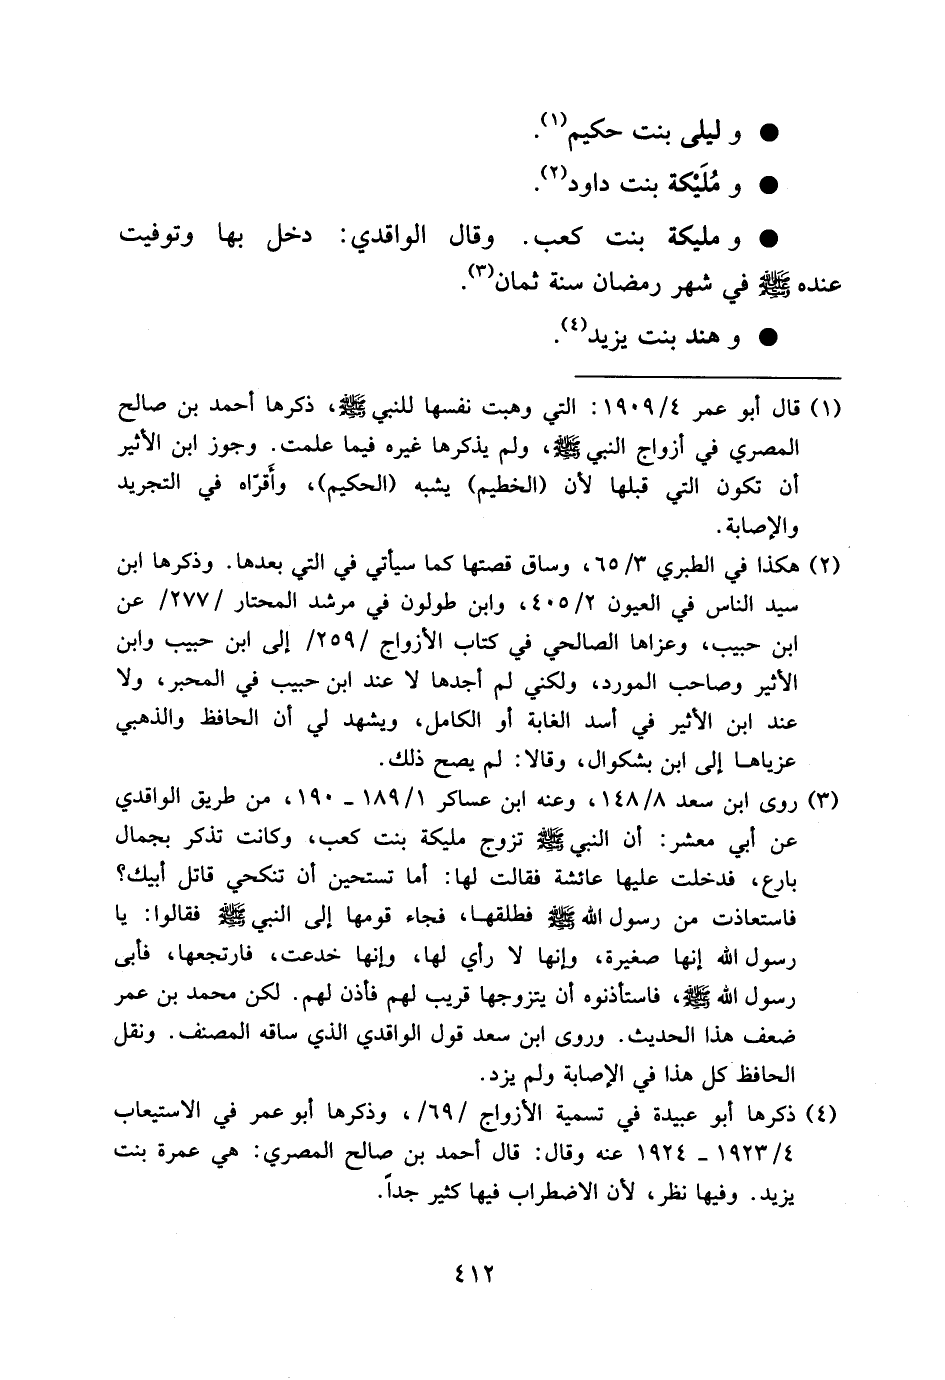 ● و ليلى بنت حكيم(١).
● و مُلَيْكة بنت داود(٢).
● و مليكة بنت كعب. وقال الواقدي: دخل بها وتوفيت
عنده ﷺ في شهر رمضان سنة ثمان(٣).
● و هند بنت يزيد(٤).
(١) قال أبو عمر ٤/ ١٩٠٩: التي وهبت نفسها للنبي ﷺ، ذكرها أحمد بن صالح
المصري في أزواج النبي ﷺ، ولم يذكرها غيره فيما علمت. وجوز ابن الأثير
أن تكون التي قبلها لأن (الخطيم) يشبه (الحكيم)، وأَقرّاه في التجريد
والإصابة.
(٢) هكذا في الطبري ٣/ ٦٥، وساق قصتها كما سيأتي في التي بعدها. وذكرها ابن
سيد الناس في العيون ٢/ ٤٠٥، وابن طولون في مرشد المحتار /٢٧٧/ عن
ابن حبيب، وعزاها الصالحي في كتاب الأزواج /٢٥٩/ إلى ابن حبيب وابن
الأثير وصاحب المورد، ولكني لم أجدها لا عند ابن حبيب في المحبر، ولا
عند ابن الأثير في أسد الغابة أو الكامل، ويشهد لي أن الحافظ والذهبي
عزياهـا إلى ابن بشكوال، وقالا: لم يصح ذلك.
(٣) روى ابن سعد ٨/ ١٤٨، وعنه ابن عساكر ١/ ١٨٩ ـ ١٩٠، من طريق الواقدي
عن أبي معشر: أن النبي ﷺ تزوج مليكة بنت كعب، وكانت تذكر بجمال
بارع، فدخلت عليها عائشة فقالت لها: أما تستحين أن تنكحي قاتل أبيك؟
فاستعاذت من رسول الله ﷺ فطلقهـا، فجاء قومها إلى النبي ﷺ فقالوا: يا
رسول الله إنها صغيرة، وإنها لا رأي لها، وإنها خدعت، فارتجعها، فأبى
رسول الله ﷺ، فاستأذنوه أن يتزوجها قريب لهم فأذن لهم. لكن محمد بن عمر
ضعف هذا الحديث. وروى ابن سعد قول الواقدي الذي ساقه المصنف. ونقل
الحافظ كل هذا في الإصابة ولم يزد.
(٤) ذكرها أبو عبيدة في تسمية الأزواج /٦٩/، وذكرها أبو عمر في الاستيعاب
٤/ ١٩٢٣ ـ ١٩٢٤ عنه وقال: قال أحمد بن صالح المصري: هي عمرة بنت
يزيد. وفيها نظر، لأن الاضطراب فيها كثير جداً.
٤١٢